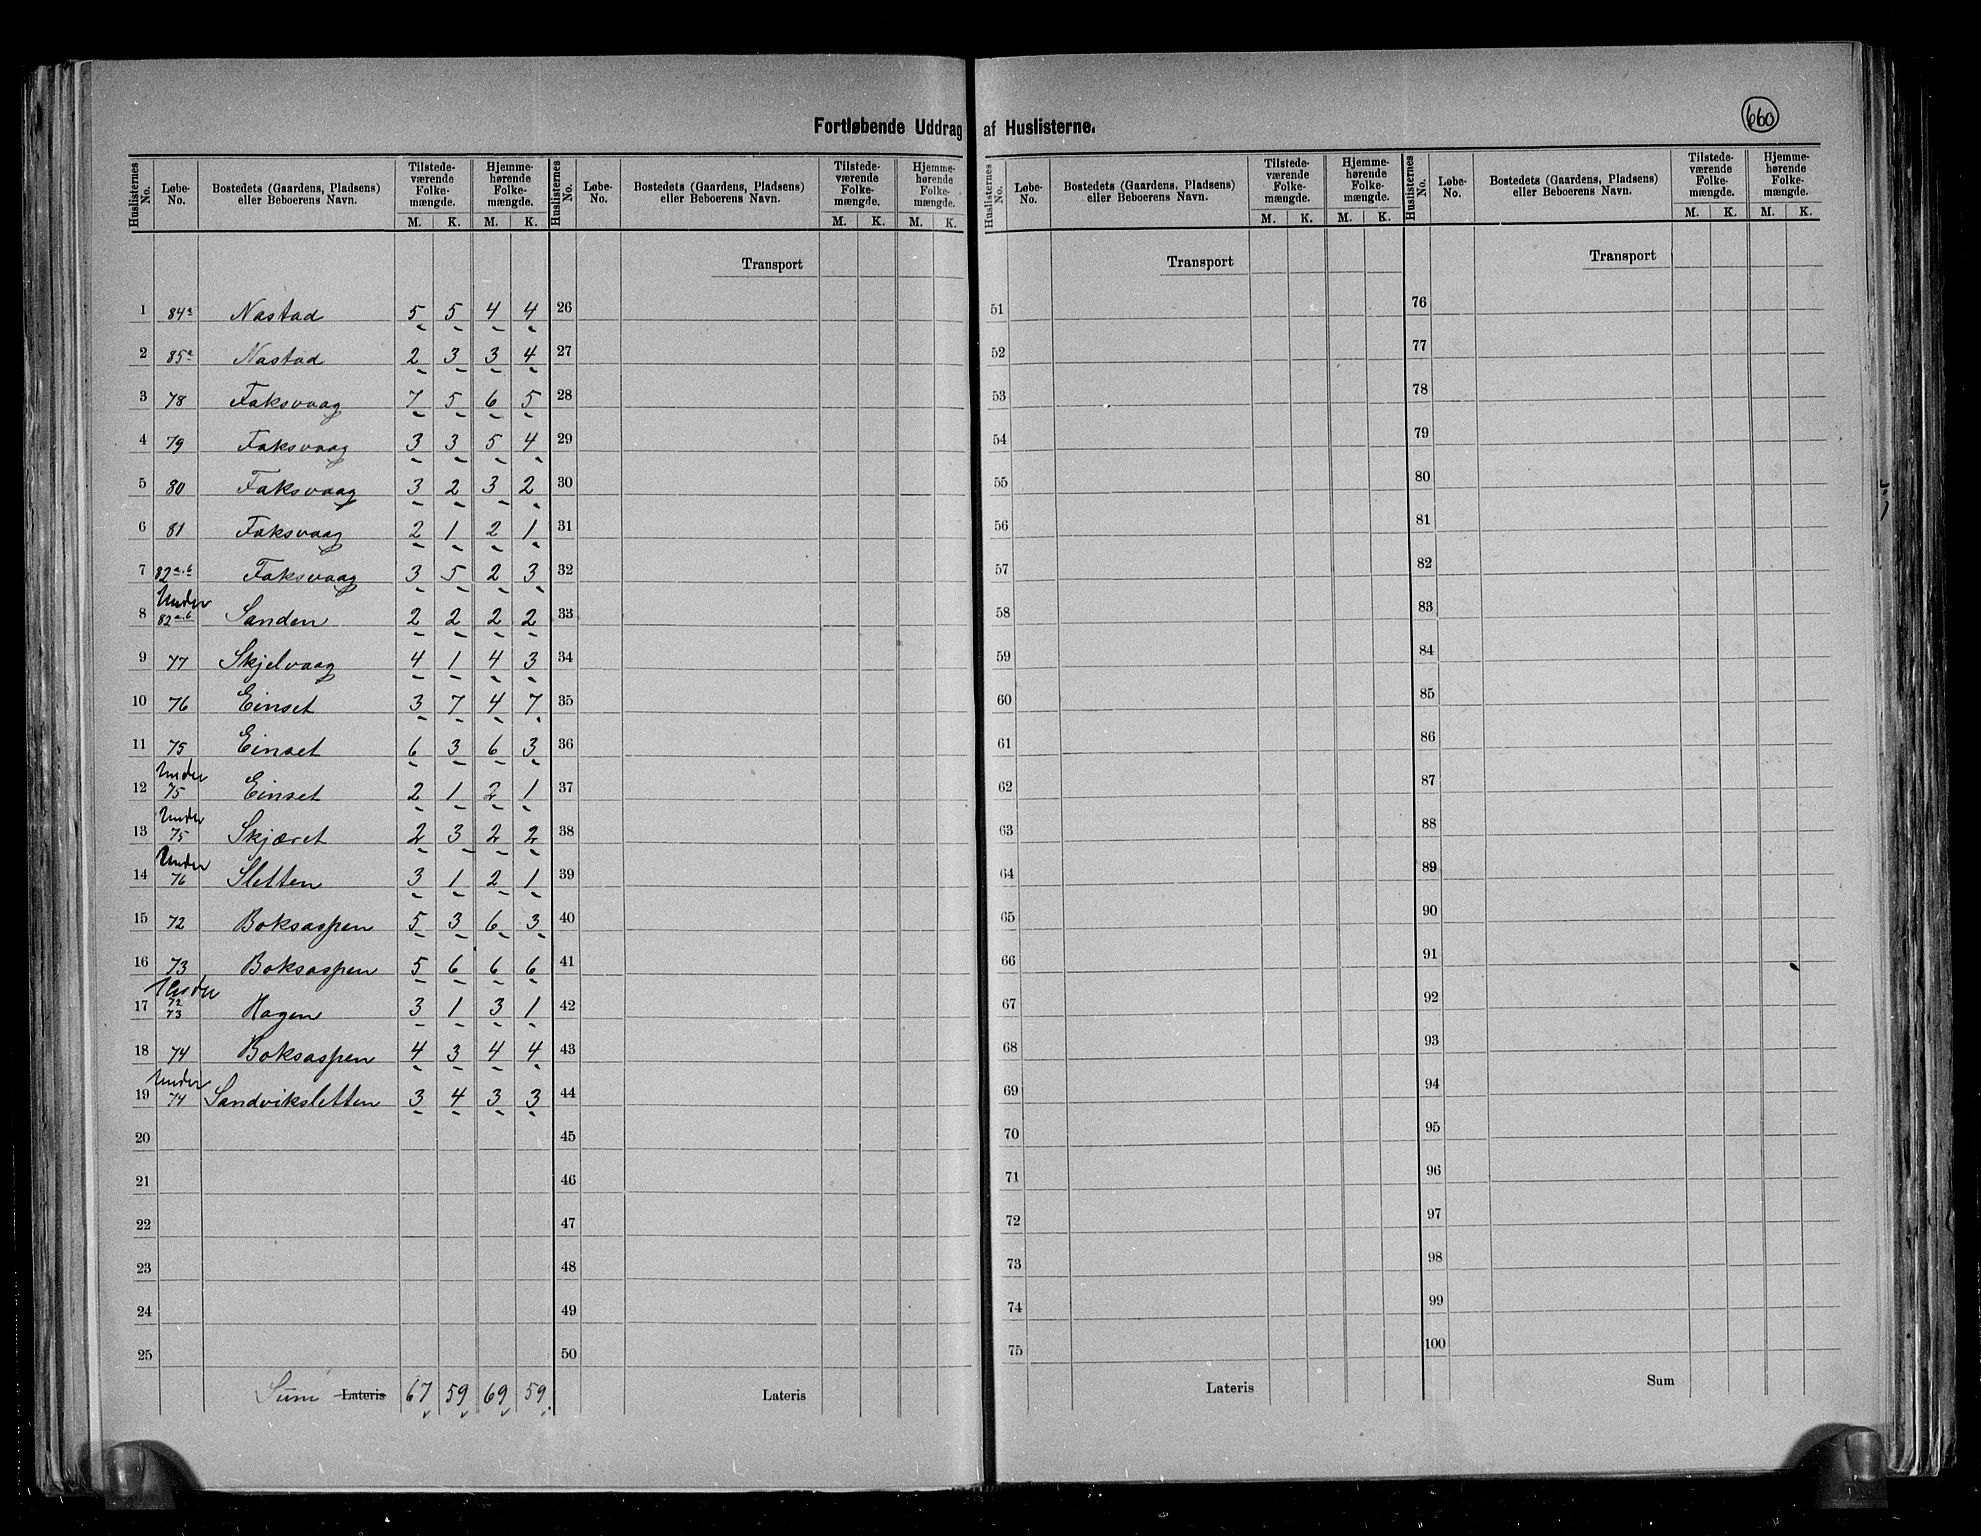 Fortløbende Uddrag af Huslisterne.
660
Huslisternes No. | Løbe-No. | Bostedets (Gaardens, Pladsens) eller Beboerens Navn. | Tilstedeværende Folkemængde. M. K. | Hjemmehørende Folkemængde. M. K.
Huslisternes No. | Løbe-No. | Bostedets (Gaardens, Pladsens) eller Beboerens Navn. | Tilstedeværende Folkemængde. M. K. | Hjemmehørende Folkemængde. M. K.
Huslisternes No. | Løbe-No. | Bostedets (Gaardens, Pladsens) eller Beboerens Navn. | Tilstedeværende Folkemængde. M. K. | Hjemmehørende Folkemængde. M. K.
Huslisternes No. | Løbe-No. | Bostedets (Gaardens, Pladsens) eller Beboerens Navn. | Tilstedeværende Folkemængde. M. K. | Hjemmehørende Folkemængde. M. K.
Transport Transport Transport
1 84a Nastad 5 5 4 4 26 51 76
2 85a Nastad 2 3 3 4 27 52 77
3 78 Faksvaag 7 5 6 5 28 53 78
4 79 Faksvaag 3 3 5 4 29 54 79
5 80 Faksvaag 3 2 3 2 30 55 80
6 81 Faksvaag 2 1 2 1 31 56 81
7 82a.b Faksvaag 3 5 2 3 32 57 82
8 Under 82a.b Sanden 2 2 2 2 33 58 83
9 77 Skjelvaag 4 1 4 3 34 59 84
10 76 Einset 3 7 4 7 35 60 85
11 75 Einset 6 3 6 3 36 61 86
12 Under 75 Einset 2 1 2 1 37 62 87
13 Under 75 Skjæret 2 3 2 2 38 63 88
14 Under 76 Sletten 3 1 2 1 39 64 89
15 72 Boksaspen 5 3 6 3 40 65 90
16 73 Boksaspen 5 6 6 6 41 66 91
17 Under 72 73 Hagen 3 1 3 1 42 67 92
18 74 Boksaspen 4 3 4 4 43 68 93
19 Under 74 Sandviksletten 3 4 3 3 44 69 94
20 45 70 95
21 46 71 96
22 47 72 97
23 48 73 98
24 49 74 99
25 50 75 100
Sum Lateris 67 59 69 59. Lateris Lateris Sum